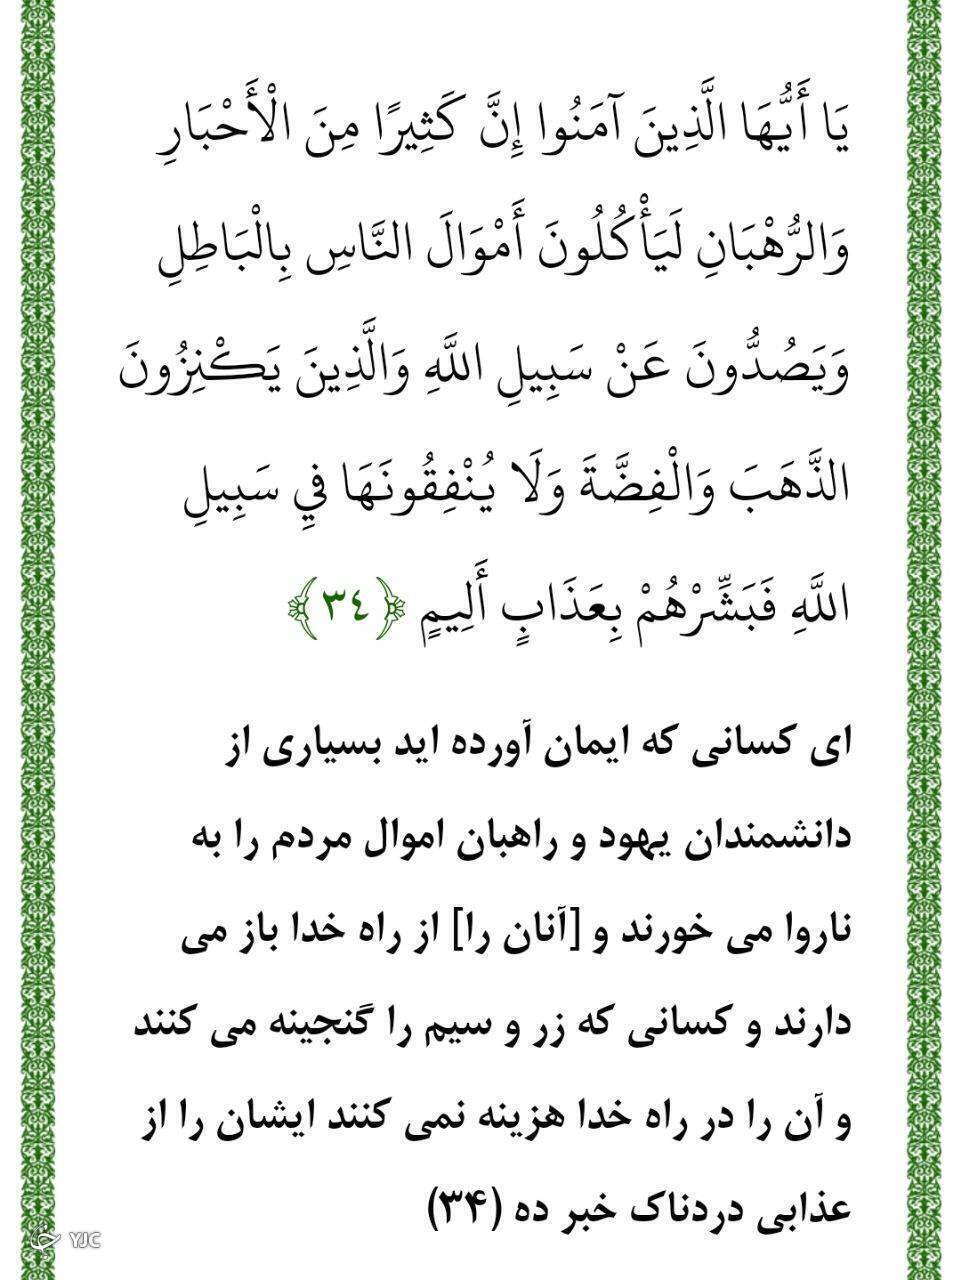 يَا أَيُّهَا الَّذِينَ آمَنُوا إِنَّ كَثِيرًا مِنَ الْأَحْبَارِ
وَالرُّهْبَانِ لَيَأْكُلُونَ أَمْوَالَ النَّاسِ بِالْبَاطِلِ
وَيَصُدُّونَ عَنْ سَبِيلِ اللَّهِ وَالَّذِينَ يَكْنِزُونَ
الذَّهَبَ وَالْفِضَّةَ وَلَا يُنْفِقُونَهَا فِي سَبِيلِ
اللَّهِ فَبَشِّرْهُمْ بِعَذَابٍ أَلِيمٍ ﴿٣٤﴾
ای کسانی که ایمان آورده اید بسیاری از
دانشمندان یهود و راهبان اموال مردم را به
ناروا می خورند و [آنان را] از راه خدا باز می
دارند و کسانی که زر و سیم را گنجینه می کنند
و آن را در راه خدا هزینه نمی کنند ایشان را از
عذابی دردناک خبر ده (۳۴)
YJC